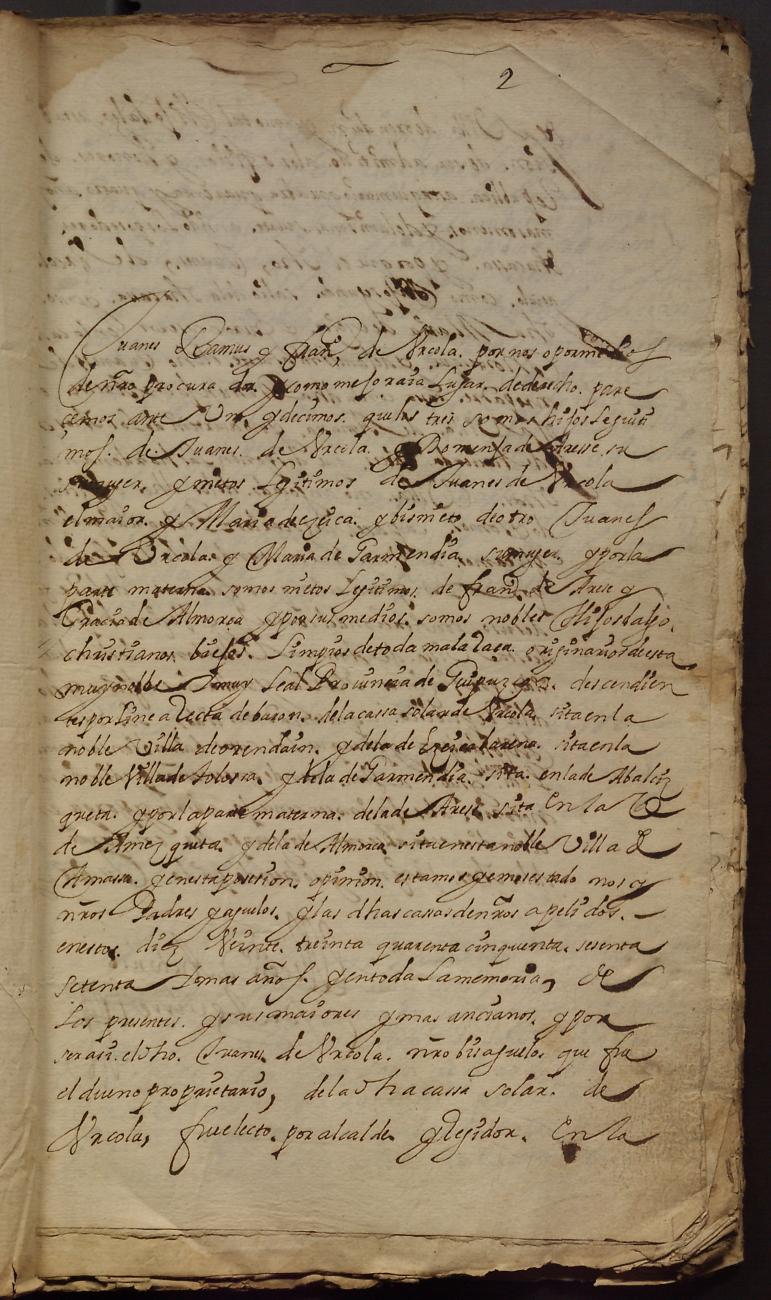 2
Juanes Ramus y fran.co de Vrcola. por nos o por medios
de nro procurador. y como mejor aia lugar. de derecho. pare
cemos ante Vm. y decimos. que los tres somos hijos legiti
mos. de Juanes. de Vrcola. y Domenja de Arese su
muger. y nietos legitimos de Juanes de Vrcola
el maior. y Maria de yçica. y bisnieto de otro Juanes
de Vrcola. y Maria de Garmendia su muger. y por la
parte materna. somos nietos legitimos. de fran.co de Arese y
Gracia de Almorca y por sus medios. somos nobles Hijosdalgo.
christianos biejos. limpios de toda mala Raca. originarios de esta
muy noble y muy leal Provincia de Guipuzcoa. descendien
tes por linea Recta de baron. de la cassa solar de Vrcola. sita en la
noble Villa de orendain. y de la de yçica sita en la
noble Villa de tolossa. y de la de Garmendia. sita. en la de Abalcis
queta. y por la parte materna. de la de Arese. sita En la
de Amezqueta. y de la de Almorca. sita en esta noble Villa de
Amassa. y en esta posesion. opinion. estamos y emos estado nos y
nros Padres y aguelos. y las dhas cassas de nros apelidos.
en estos. diez Veinte. treinta quarenta cinquenta. sesenta
setenta y mas años. y en toda la memoria, de
los presentes. y sus maiores y mas ancianos. y por
ser asi. el dho. Juanes de Vrcola. nro bisaguelo. que fue
el dueno proprietario, de la dha cassa solar. de
Vrcola, fue electo. por alcalde y Regidor. En la